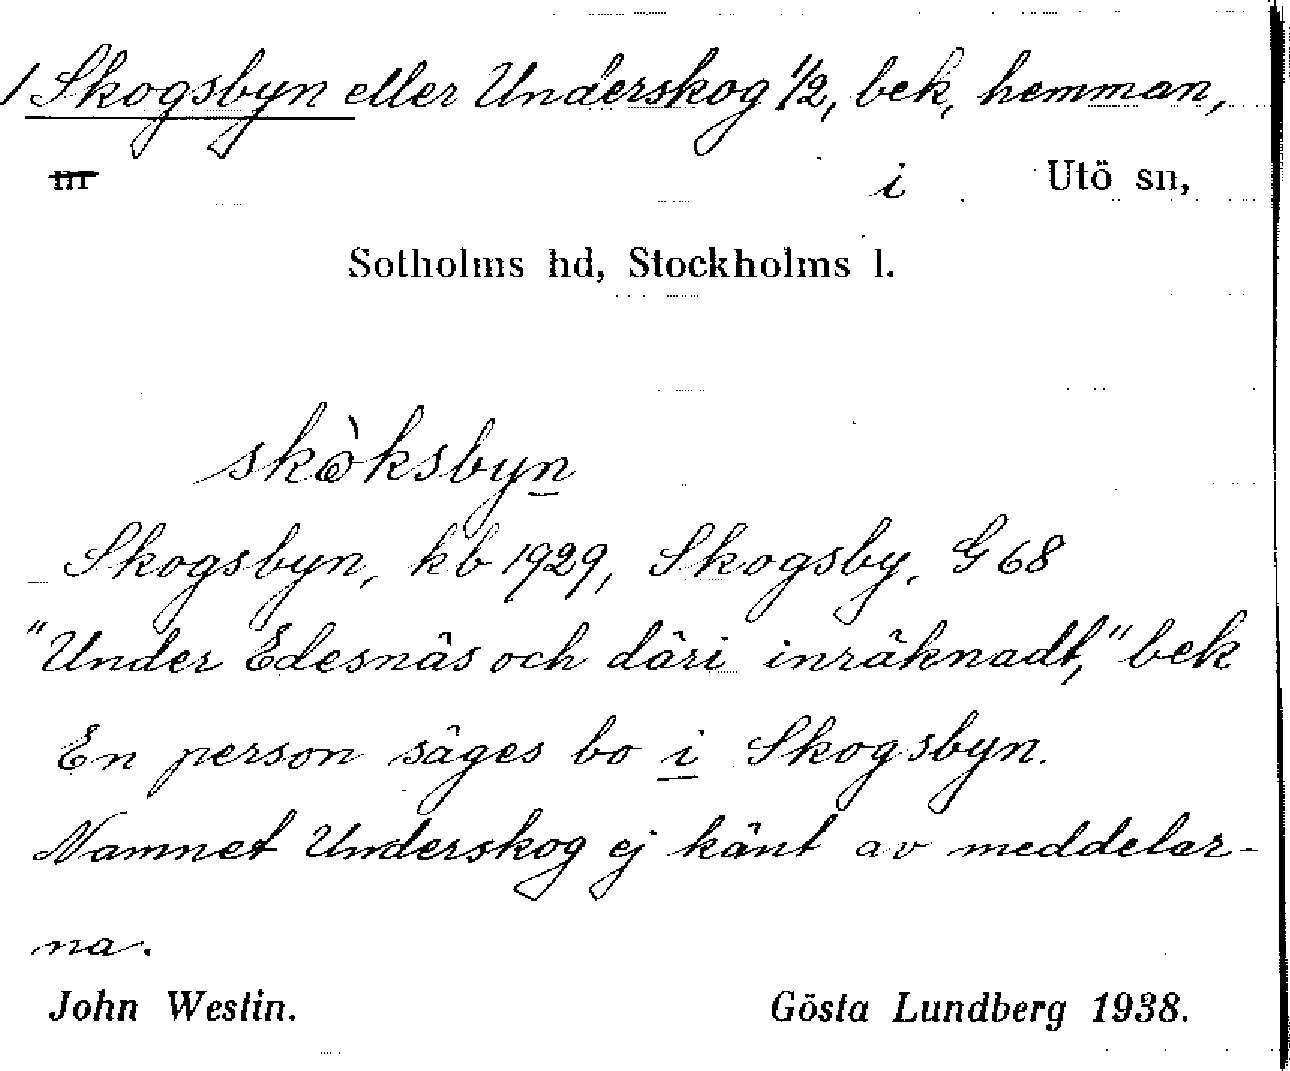 / Skogsbyn eller Underskog 1/2, bek, hemman,
i Utö sn,
Sotholms hd, Stockholms l.
skòksbyn
Skogsbyn, kb 1929, Skogsby, G 68
"Under Edesnäs och däri inräknadt," bek
En person säges bo i Skogsbyn.
Namnet Underskog ej känt av meddelar-
na.
John Westin. Gösta Lundberg 1938.